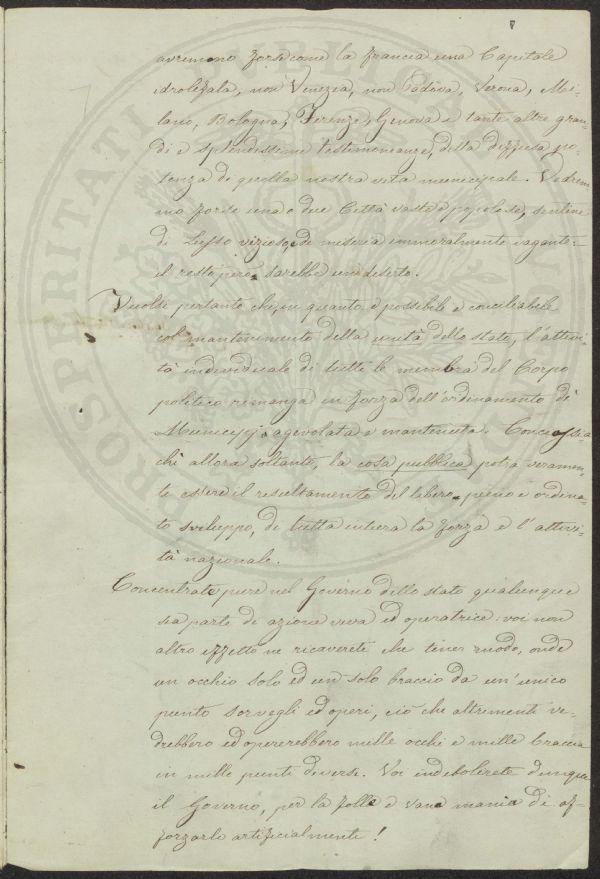 avremmo forse come la francia una Capitale
idrocefala, non Venezia, non Padova, Verona, Mi-
lano, Bologna, Firenze, Genova e tante altre gran-
di e splendissime testimonianze, della diffusa po-
tenza di quella nostra vita municipale. Vedrem
mo forse una o due Città vaste e popolose, sentine
di Lusso vizioso, e di miseria immoralmente vagante:
il resto però, sarebbe un deserto.
Vuolsi pertanto che, in quanto è possibile e conciliabile
col mantenimento della unità dello stato, l'attivi-
tà individuale di tutte le membra del Corpo
politico rimanga in forza dell'ordinamento di
Municipj, agevolata e mantenuta. Conciossia
chè allora soltanto, la cosa pubblica potrà veramen-
te essere il resultamento del libero, pieno e ordina-
to sviluppo, di tutta intiera la forza e l'attivi-
tà nazionale.
Concentrate pure nel Governo dello stato qualunque
sia parte di azione viva ed operatrice: voi non
altro effetto ne ricaverete che tener modo, onde
un occhio solo ed un solo braccio da un'unico
punto sorvegli ed operi, ciò che altrimenti ve-
drebbero ed opererebbero mille occhi e mille braccia
in mille punti diversi. Voi indebolirete dunque
il Governo, per la folle e vana mania di af-
forzarlo artificialmente!
PROSPERITATI PUBLICAE